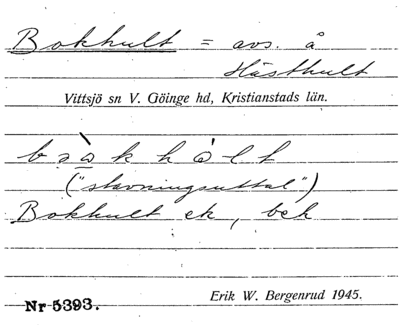 Bokhult = avs. å
Hästhult
Vittsjö sn V. Göinge hd, Kristianstads län.
("stavningsuttal")
Bokhult ek, bek
Nr 5393.
Erik W. Bergenrud 1945.